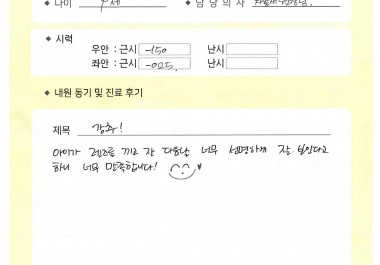 ◆ 나이 9세 ◆ 담당의사
◆ 시력
우안 : 근시 -150 난시
좌안 : 근시 -025. 난시
◆ 내원 동기 및 진료 후기
제목 강추!
아이가 렌즈를 끼고 잔 다음날 너무 선명하게 잘 보인다고
하니 너무 만족합니다!